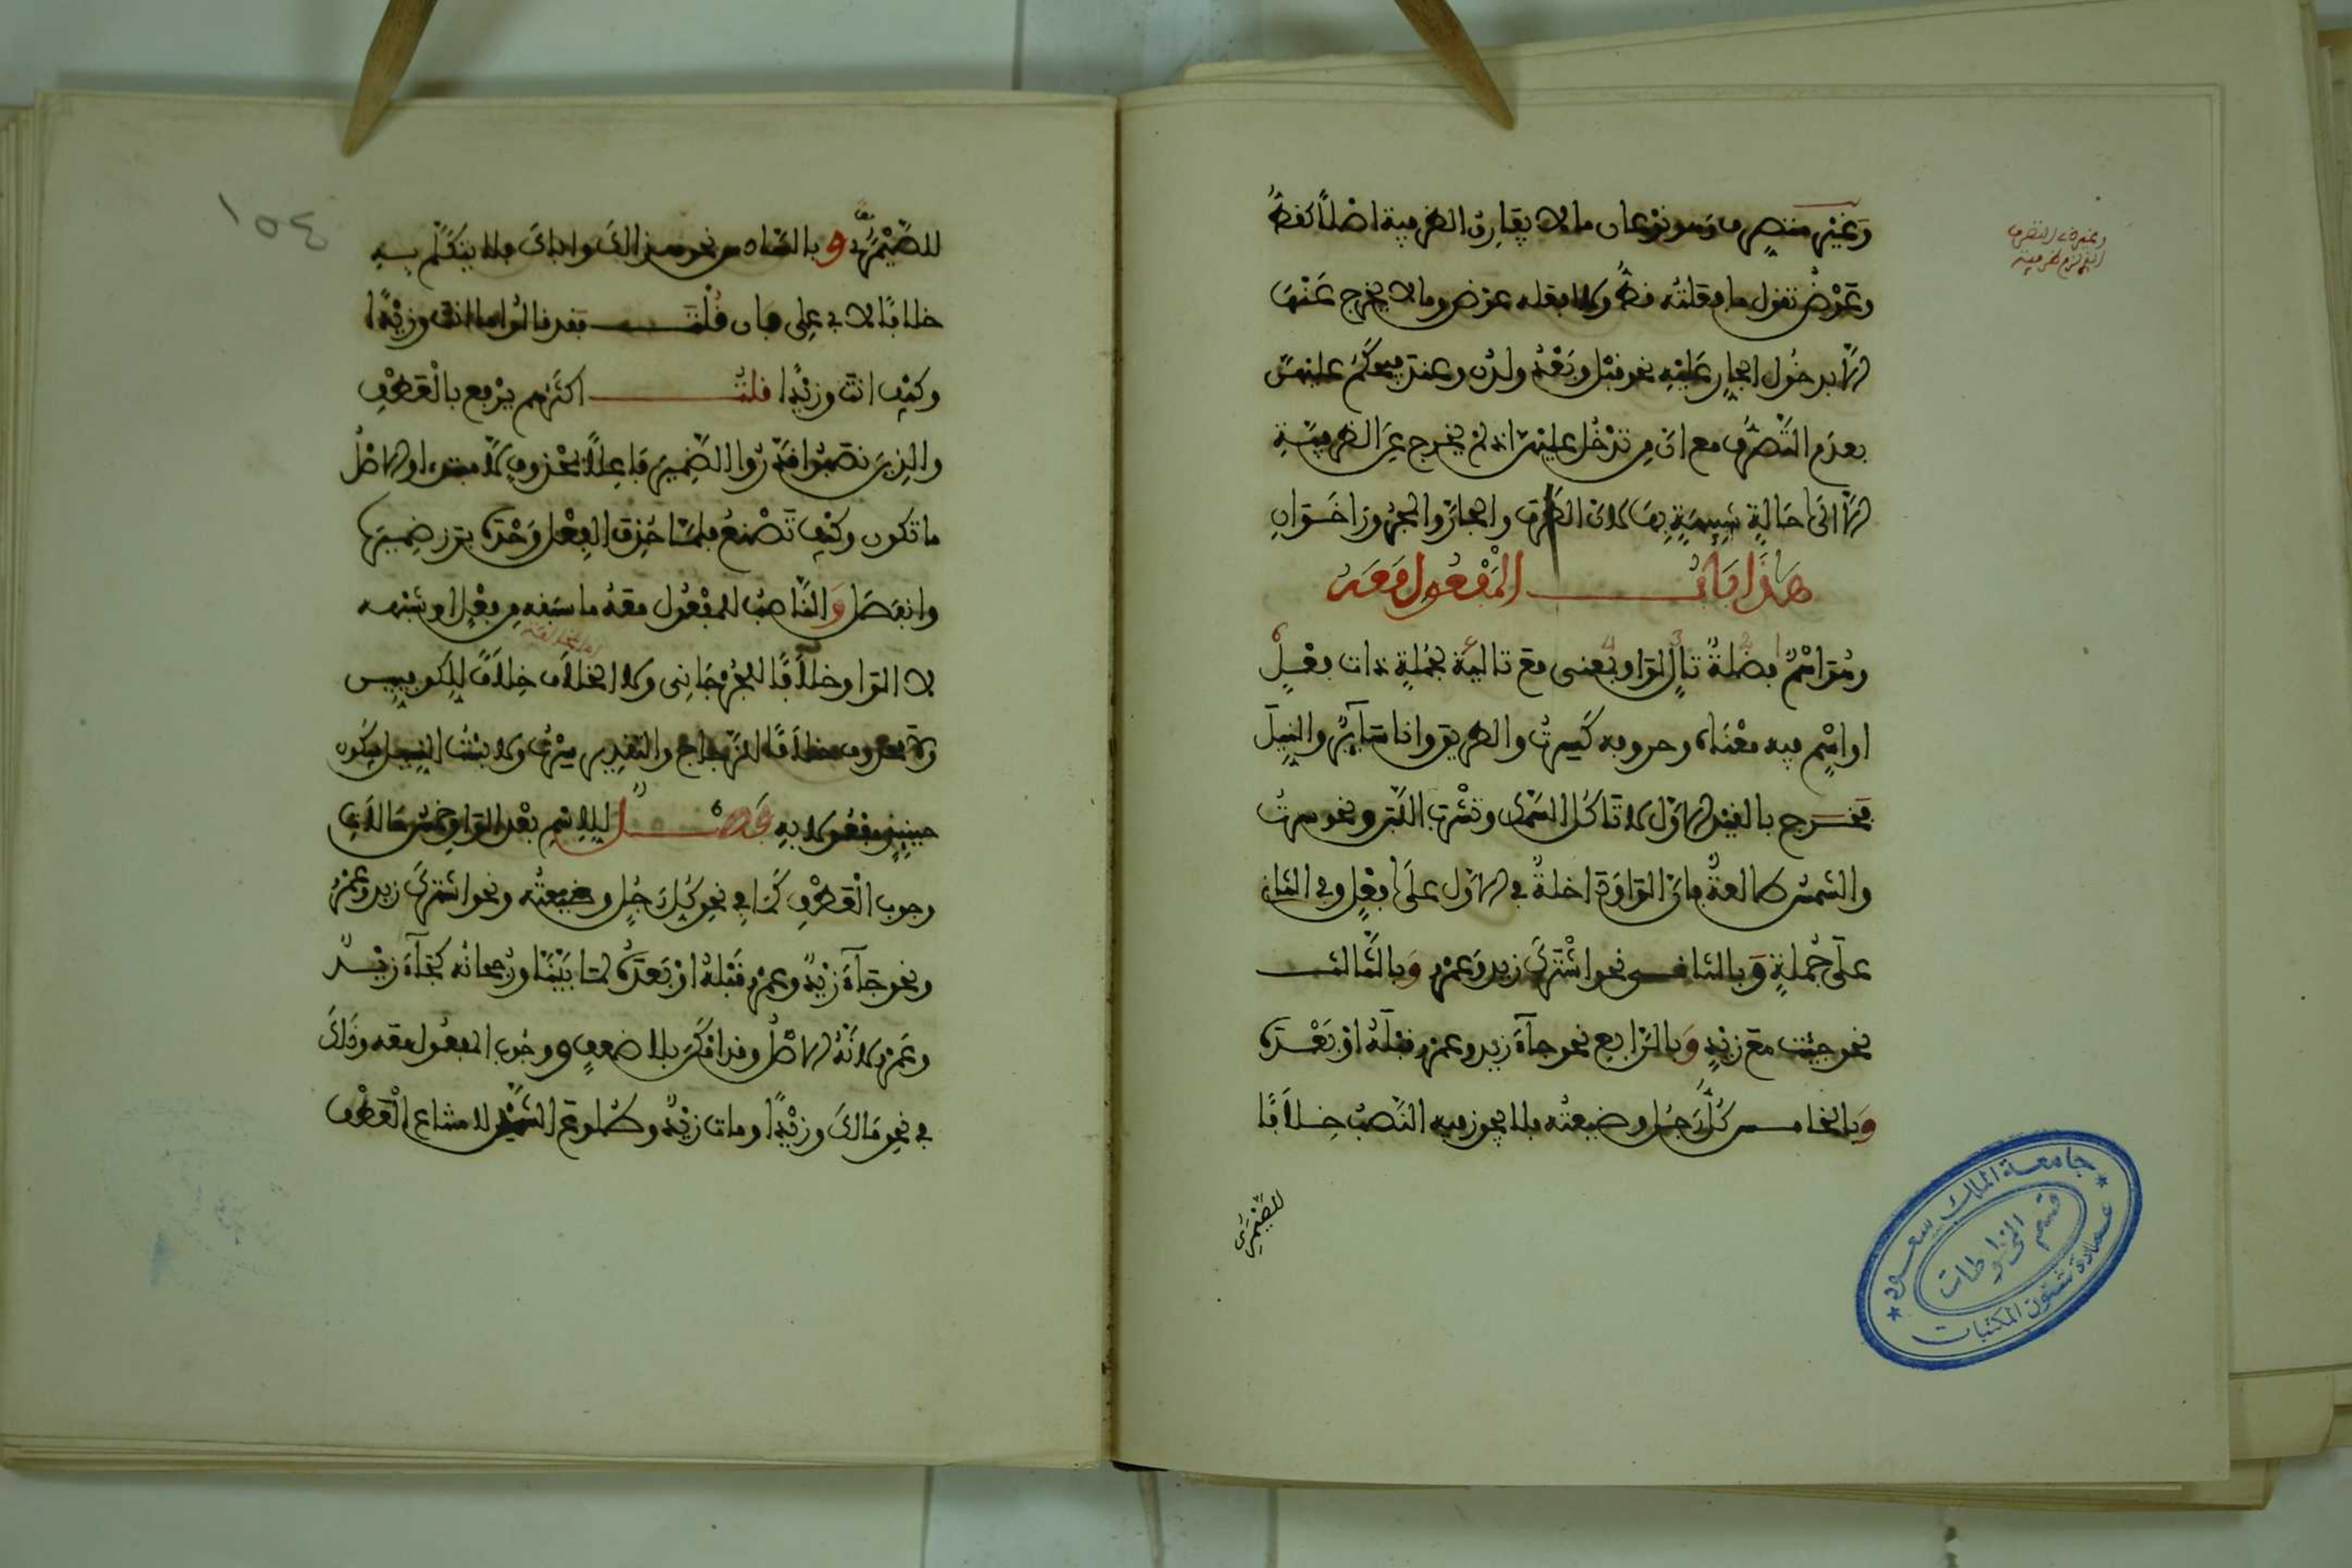 وغير متصرف وهو نوعان ما لا يفارق الظرفية اصلا كقط
وعوض تقول ما فعلته قط ولا افعله عوض وما لا يخرج عنها
الا بدخول الجار عليه نحو قبل وبعد ولدن وعند فيحكم عليهن
بعدم التصرف مع ان من تدخل عليهن اذ لم يخرج عن الظرفية
الا الى حالة شبيهة بها لان الظرف والجار والمجرور اخوان
هذا باب المفعول معه
وهو اسم فضلة تال لواو بمعنى مع تالية لجملة ذات فعل
او اسم فيه معناه وحروفه كسرت والطريق وانا سائر والنيل
فخرج باللفظ الاول لا تاكل السمك وتشرب اللبن ونحو سرت
والشمس طالعة فان الواو داخلة في الاول على فعل وفي الثاني
على جملة وبالثاني نحو اشترك زيد وعمرو وبالثالث
نحو جئت مع زيد وبالرابع نحو جاء زيد وعمرو قبله او بعده
وبالخامس كل رجل وضيعته فلا يجوز فيه النصب خلافا
للصيمري
١٥٤
للصيمري وبالسادس نحو هذا لك واباك فلا يتكلم به
خلافا لابي علي فان قلت فقد قالوا ما انت وزيدا
وكيف انت وزيدا قلت اكثرهم يرفع بالعطف
والذين نصبوا قدروا الضمير فاعلا لمحذوف لا مبتدا والاصل
ما تكون وكيف تصنع فلما حذف الفعل وحده برز ضميره
وانفصل والناصب للمفعول معه ما سبقه من فعل او شبهه
لا الواو خلافا للجرجاني ولا الخلاف خلافا للكوفيين
ولا محذوف خلافا للزجاج والتقدير سرت ولابست النيل فيكون
حينئذ مفعولا به فصل للاسم بعد الواو خمس حالات
وجوب العطف كما في نحو كل رجل وضيعته ونحو اشترك زيد وعمرو
ونحو جاء زيد وعمرو قبله او بعده لما بينا ورجحانه كجاء زيد
وعمرو لانه الاصل وقد امكن بلا ضعف ووجوب المفعول معه وذلك
في نحو مالك وزيدا ومات زيد وطلوع الشمس لامتناع العطف
جامعة الملك سعود
قسم المخطوطات
عمادة شئون المكتبات